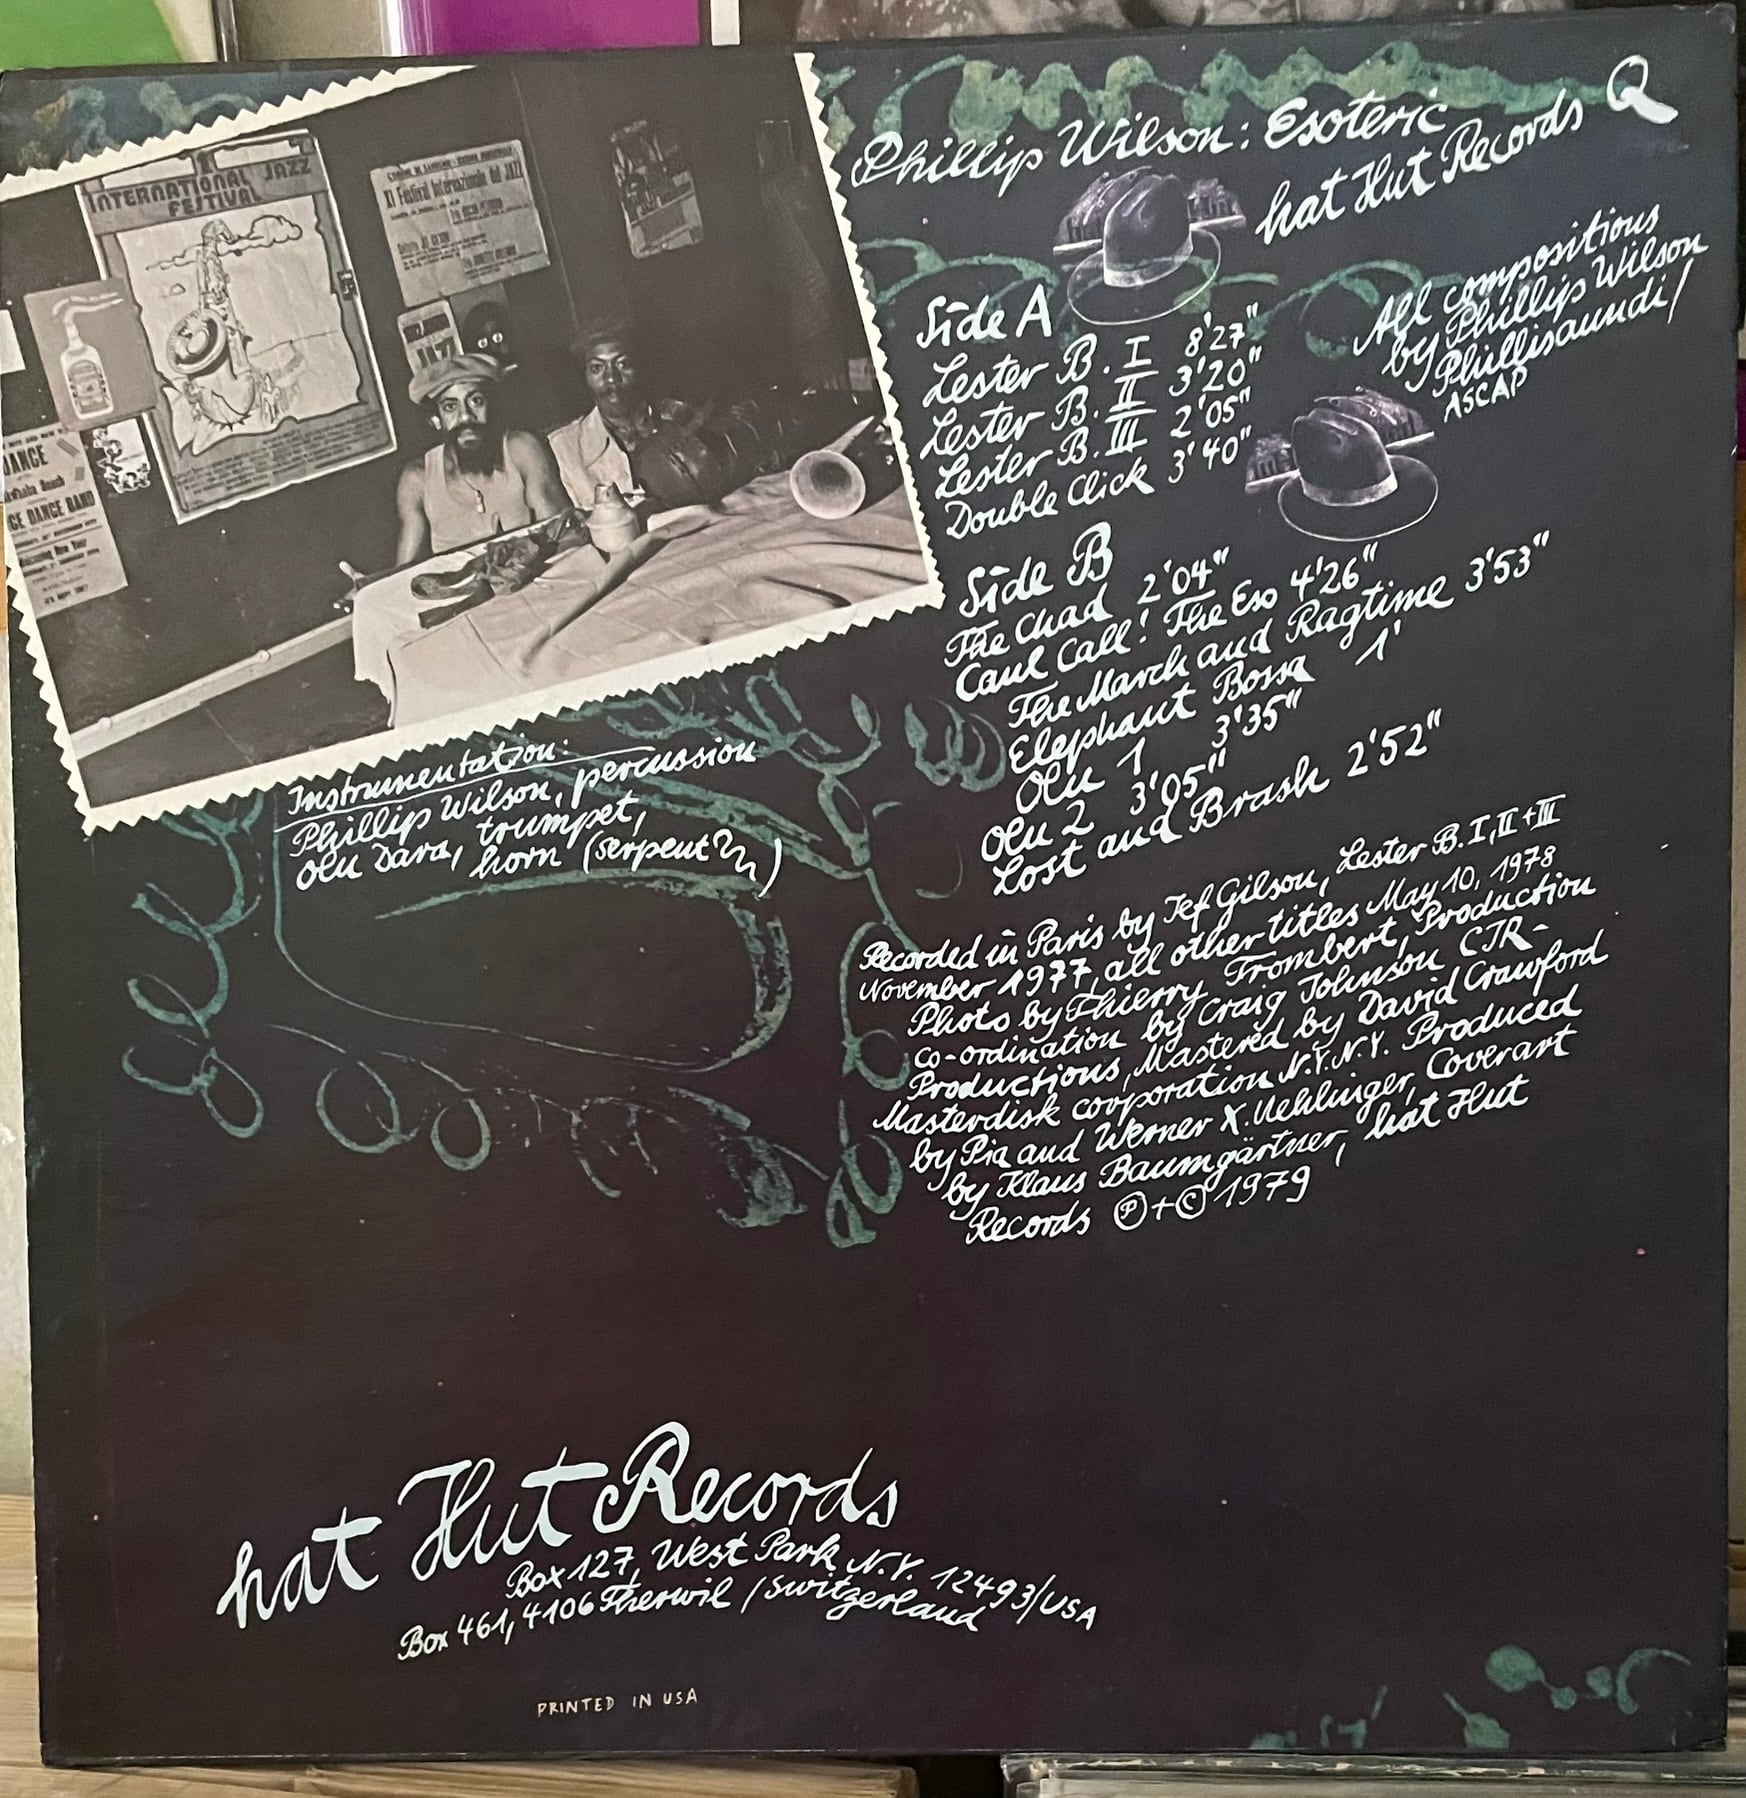 INTERNATIONAL JAZZ
FESTIVAL
XI Festival Internazionale del JAZZ
JAZZ
DANCE
DANCE BAND
Phillip Wilson: Esoteric
hat Hut Records Q
All compositions
by Phillip Wilson
Phillisaundi/
ASCAP
Side A
Lester B. I 8'27"
Lester B. II 3'20"
Lester B. III 2'05"
Double Click 3'40"
Side B
The Chad 2'04"
Caul Call! The Eso 4'26"
The March and Ragtime 3'53"
Elephant Bossa 1'
Olu 1 3'35"
Olu 2 3'05"
Lost and Brash 2'52"
Instrumentation:
Phillip Wilson, percussion
Olu Dara, trumpet,
horn (serpent)
Recorded in Paris by Jef Gilson, Lester B. I, II + III
November 1977, all other titles May 10, 1978
Photo by Thierry Trombert, Production
co-ordination by Craig Johnson CJR-
Productions, Mastered by David Crawford
Masterdisk corporation N.Y.N.Y. Produced
by Pia and Werner X. Uehlinger, Coverart
by Klaus Baumgärtner, hat Hut
Records ℗+© 1979
hat Hut Records
Box 127, West Park N.Y. 12493/USA
Box 461, 4106 Therwil / Switzerland
PRINTED IN USA